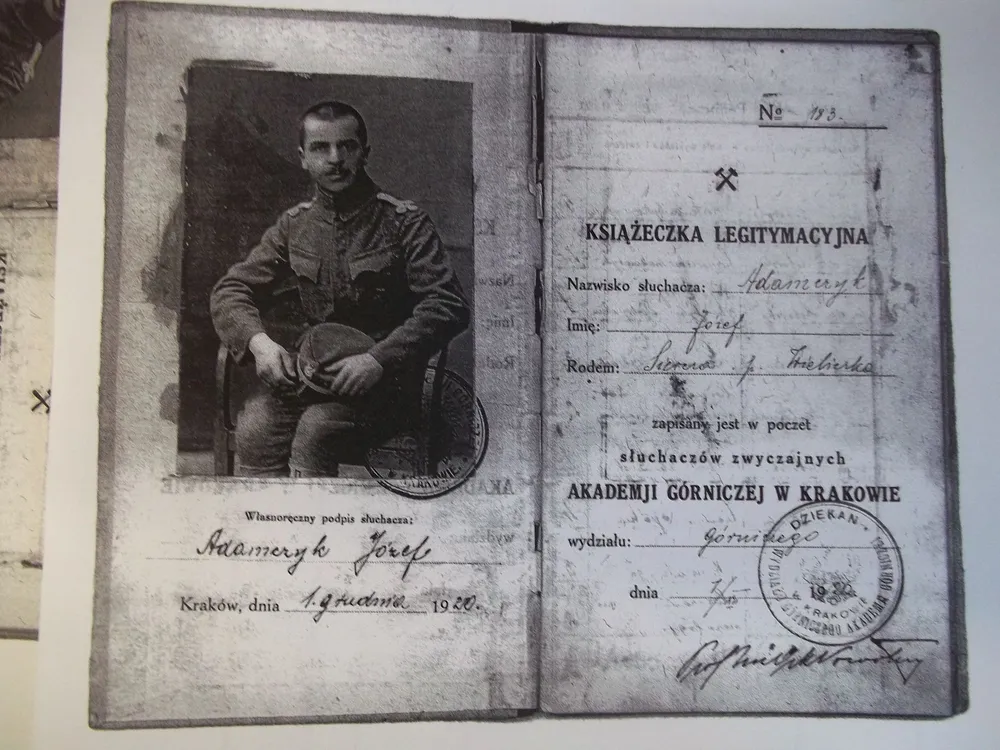 Własnoręczny podpis słuchacza:
Adamczyk Józef
Kraków, dnia 1. grudnia 1920.
KRAKOWIE
№ 183.
KSIĄŻECZKA LEGITYMACYJNA
Nazwisko słuchacza: Adamczyk
Imię: Józef
Rodem: p. Wieliczka
zapisany jest w poczet
słuchaczów zwyczajnych
AKADEMJI GÓRNICZEJ W KRAKOWIE
wydziału: Górniczego
dnia 1920
DZIEKAN
WYDZIAŁU GÓRNICZEGO AKADEMII GÓRNICZEJ
W KRAKOWIE